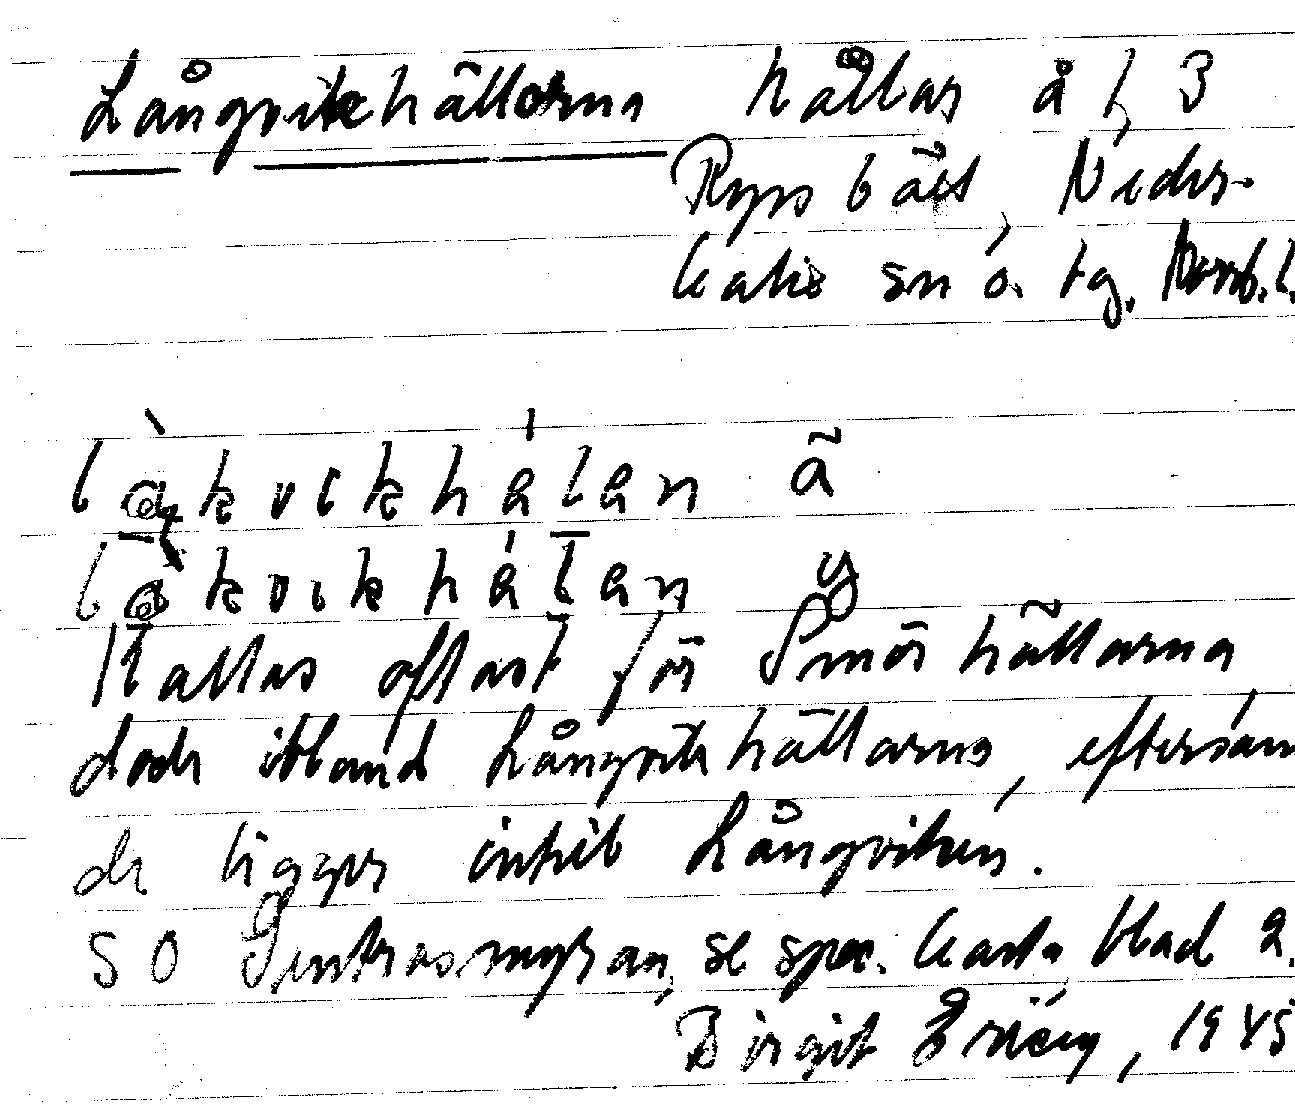 Långvikhällorna hällar å f, 3
Ryssbält, Neder-
kalix sn o. tg. Norrb.l.
Kallas oftast för Smörhällarna
dock ibland Långvikhällarna, eftersom
de ligger intill Långviken.
SO Sentrasmyran, se spec. karta, blad 2.
Birgit 1945